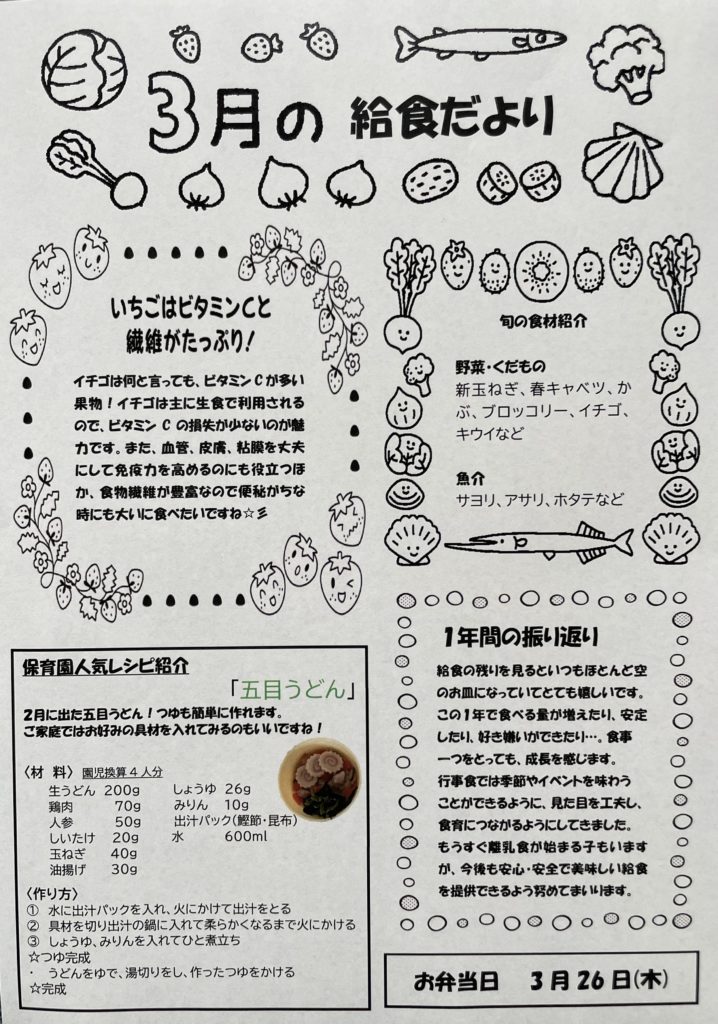 3月の 給食だより
いちごはビタミンCと
繊維がたっぷり!
イチゴは何と言っても、ビタミンCが多い
果物!イチゴは主に生食で利用される
ので、ビタミンCの損失が少ないのが魅
力です。また、血管、皮膚、粘膜を丈夫
にして免疫力を高めるのにも役立つほ
か、食物繊維が豊富なので便秘がちな
時にも大いに食べたいですね☆彡
旬の食材紹介
野菜・くだもの
新玉ねぎ、春キャベツ、か
ぶ、ブロッコリー、イチゴ、
キウイなど
魚介
サヨリ、アサリ、ホタテなど
保育園人気レシピ紹介
「五目うどん」
2月に出た五目うどん!つゆも簡単に作れます。
ご家庭ではお好みの具材を入れてみるのもいいですね!
〈材 料〉 園児換算4人分
生うどん 200g しょうゆ 26g
鶏肉 70g みりん 10g
人参 50g 出汁パック(鰹節・昆布)
しいたけ 20g 水 600ml
玉ねぎ 40g
油揚げ 30g
〈作り方〉
① 水に出汁パックを入れ、火にかけて出汁をとる
② 具材を切り出汁の鍋に入れて柔らかくなるまで火にかける
③ しょうゆ、みりんを入れてひと煮立ち
☆つゆ完成
・ うどんをゆで、湯切りをし、作ったつゆをかける
☆完成
1年間の振り返り
給食の残りを見るといつもほとんど空
のお皿になっていてとても嬉しいです。
この1年で食べる量が増えたり、安定
したり、好き嫌いができたり…。食事
一つをとっても、成長を感じます。
行事食では季節やイベントを味わう
ことができるように、見た目を工夫し、
食育につながるようにしてきました。
もうすぐ離乳食が始まる子もいます
が、今後も安心・安全で美味しい給食
を提供できるよう努めてまいります。
お弁当日 3月26日(木)